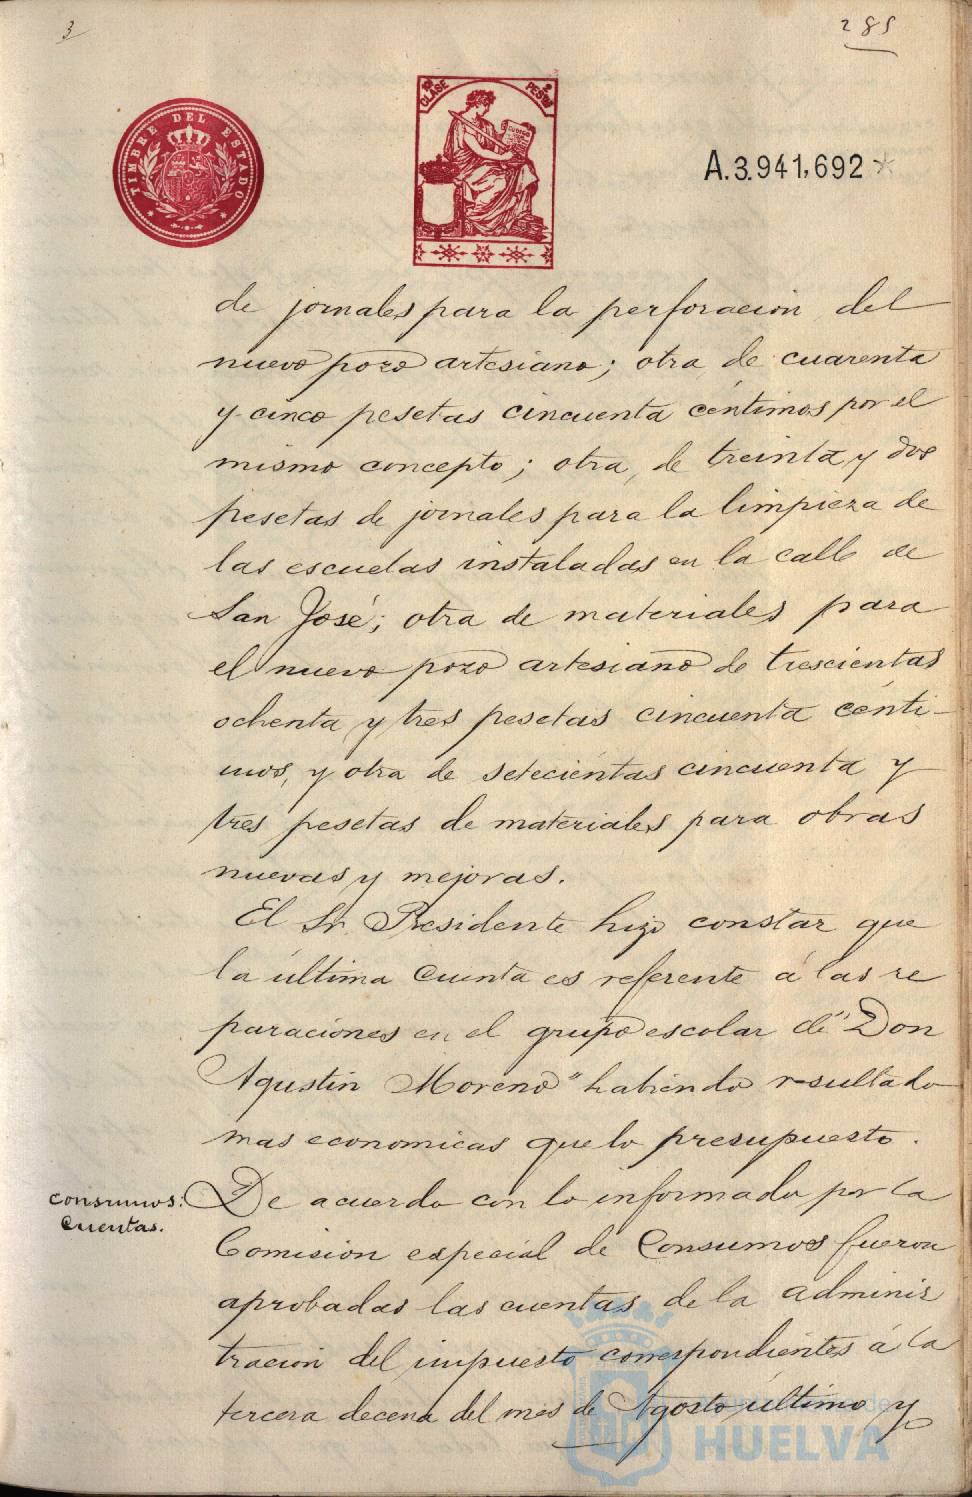 3
285
TIMBRE DEL ESTADO
10ª CLASE
2 PESTAS
A.3.941,692
de jornales para la perforacion del
nuevo pozo artesiano; otra de cuarenta
y cinco pesetas cincuenta céntimos por el
mismo concepto; otra, de treinta y dos
pesetas de jornales para la limpieza de
las escuelas instaladas en la calle de
San José; otra de materiales para
el nuevo pozo artesiano de trescientas
ochenta y tres pesetas cincuenta cénti-
mos, y otra de setecientas cincuenta y
tres pesetas de materiales para obras
nuevas y mejoras.
El Sr. Presidente hizo constar que
la última cuenta es referente á las re
paraciones en el grupo escolar de "Don
Agustin Moreno" habiendo resultado
mas economicas que lo presupuesto.
Consumos:
Cuentas.
De acuerdo con lo informado por la
Comision especial de Consumos fueron
aprobadas las cuentas de la adminis
tracion del impuesto correspondientes á la
tercera decena del mes de Agosto último y
HUELVA